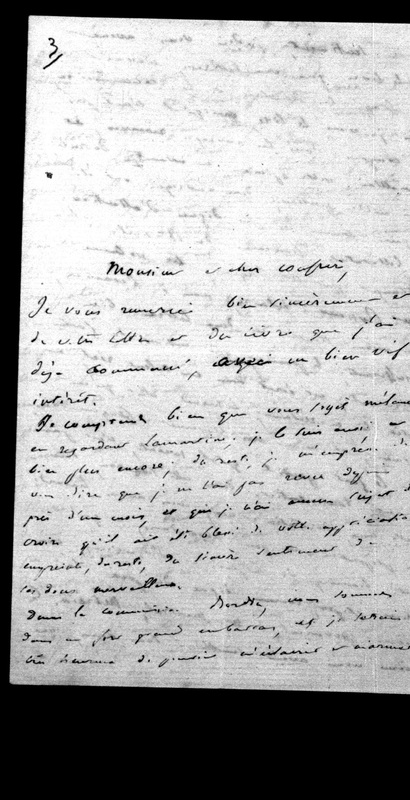 3/
Monsieur et cher confrère,
Je vous remercie bien sincèrement et
de votre lettre et du livre que j'ai
déjà commencé, avec un bien vif
intérêt.
Je comprends bien que vous soyez
en regardant Lamartine. je le suis aussi et
bien plus encore, du reste, je m'empresse de
vous dire que je ne l'ai pas revu depuis
près d'un mois, et que je n'ai aucun sujet de
croire qu'il ait été blessé de votre appréciation
empreinte, du reste, du sentiment de
ses dons merveilleux.
Dans la commission nous sommes
dans un fort grand embarras, et je
très heureux de pouvoir m'éclairer et